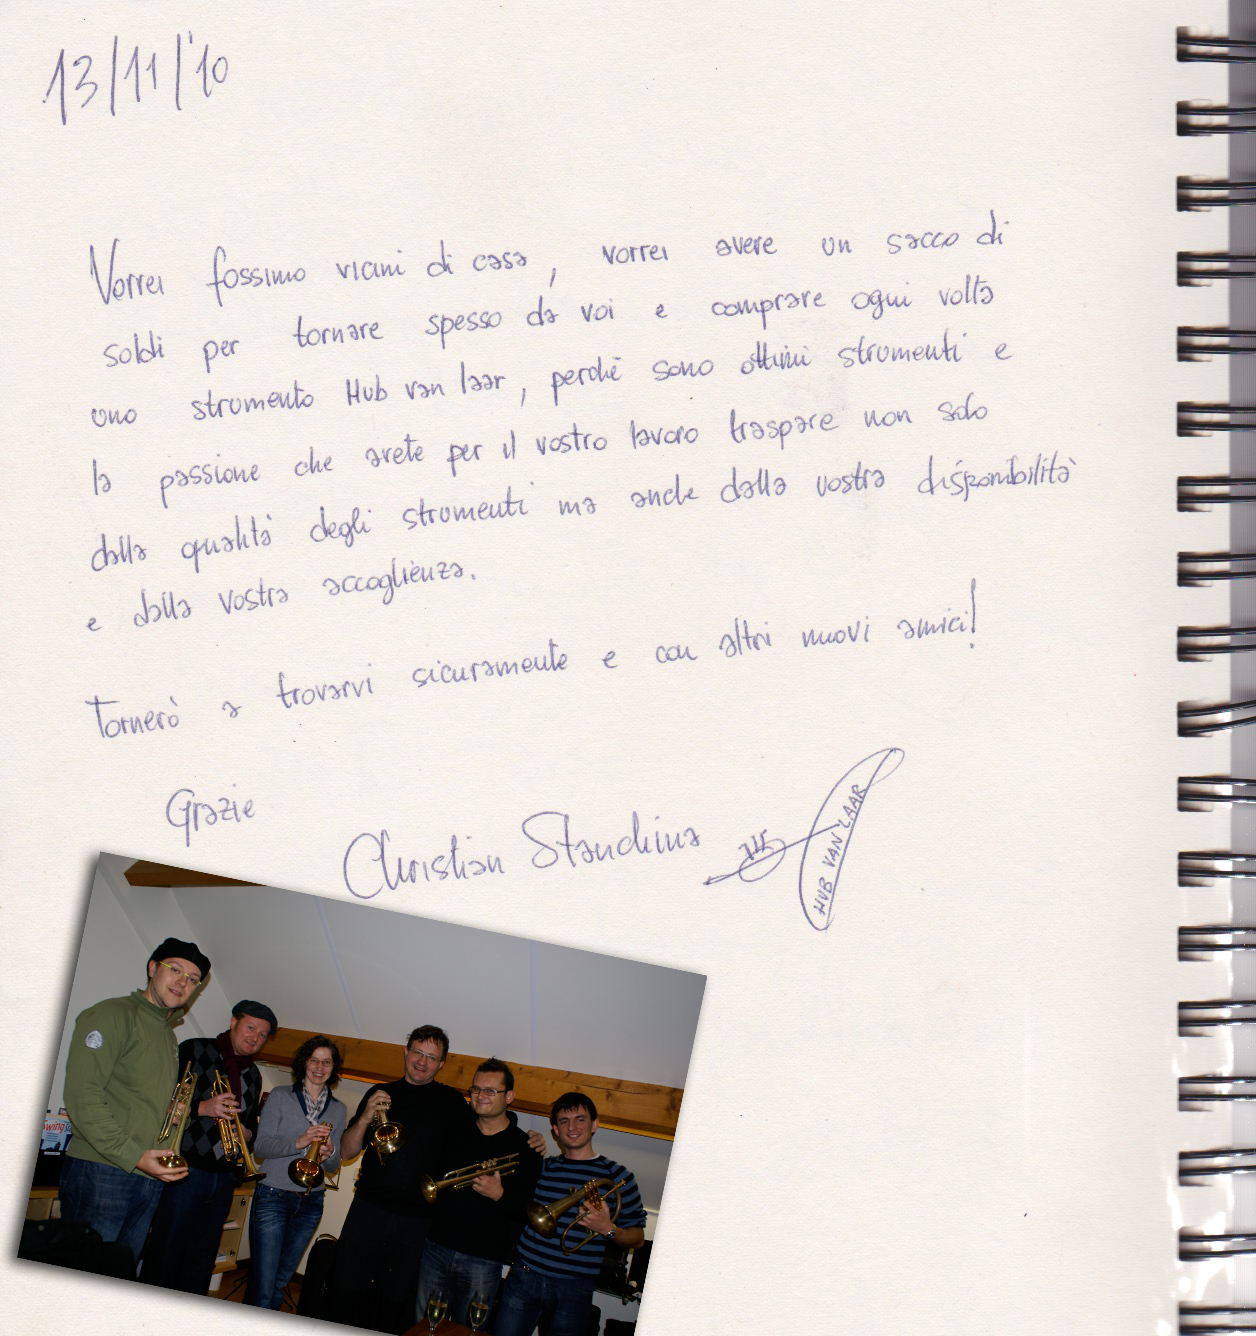 13/11/'10
Vorrei fossimo vicini di casa, vorrei avere un sacco di
soldi per tornare spesso da voi e comprare ogni volta
uno strumento Hub van laar, perchè sono ottimi strumenti e
la passione che avete per il vostro lavoro traspare non solo
dalla qualità degli strumenti ma anche dalla vostra disponibilità
e dalla vostra accoglienza.
Tornerò a trovarvi sicuramente e con altri nuovi amici!
Grazie
Christian Stanchina
HUB VAN LAAR